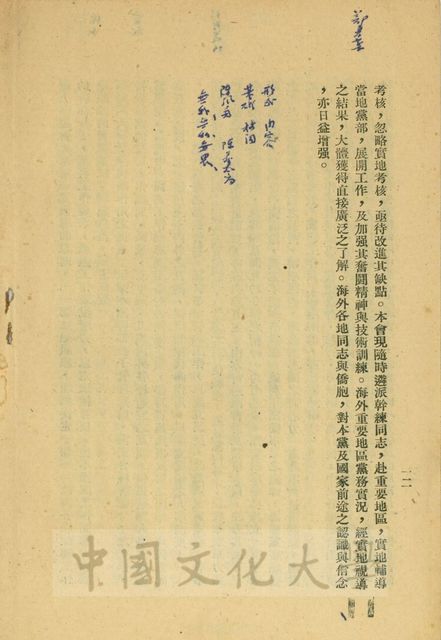 考核，忽略實地考核，亟待改進其缺點。本會現隨時遴派幹練同志，赴重要地區，實地輔導
當地黨部，展開工作，及加强其奮鬪精神與技術訓練。海外重要地區黨務實況，經實地視導
之結果，大體獲得直接廣泛之了解。海外各地同志與僑胞，對本黨及國家前途之認識與信念
，亦日益增强。
一二
形式 內容
中國文化大學